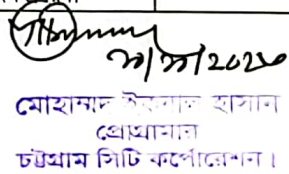 মোহাম্মদ ইকবাল হাসান
প্রোগ্রামার
চট্টগ্রাম সিটি কর্পোরেশন।